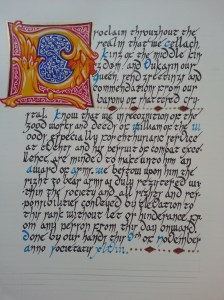 Proclaim throughout the
realm that we Cellach
king of the middle kin
gdom and our
queen send greetings and
commendations from our
barony of shattered cry
stal. Know that in recognition of the
good works and deeds of william of the w
oods especially for enthusiastic service
at events and his pursuit of combat exce
llence are minded to make unto him an
award of arms. we bestow upon him the
right to bear arms as duly registered wi
thin the society and all rights and res
ponsibilities conveyed by elevation to
this rank without let or hinderance fr
om any person from this day onward
done by our hands this 9th of november
anno societatis